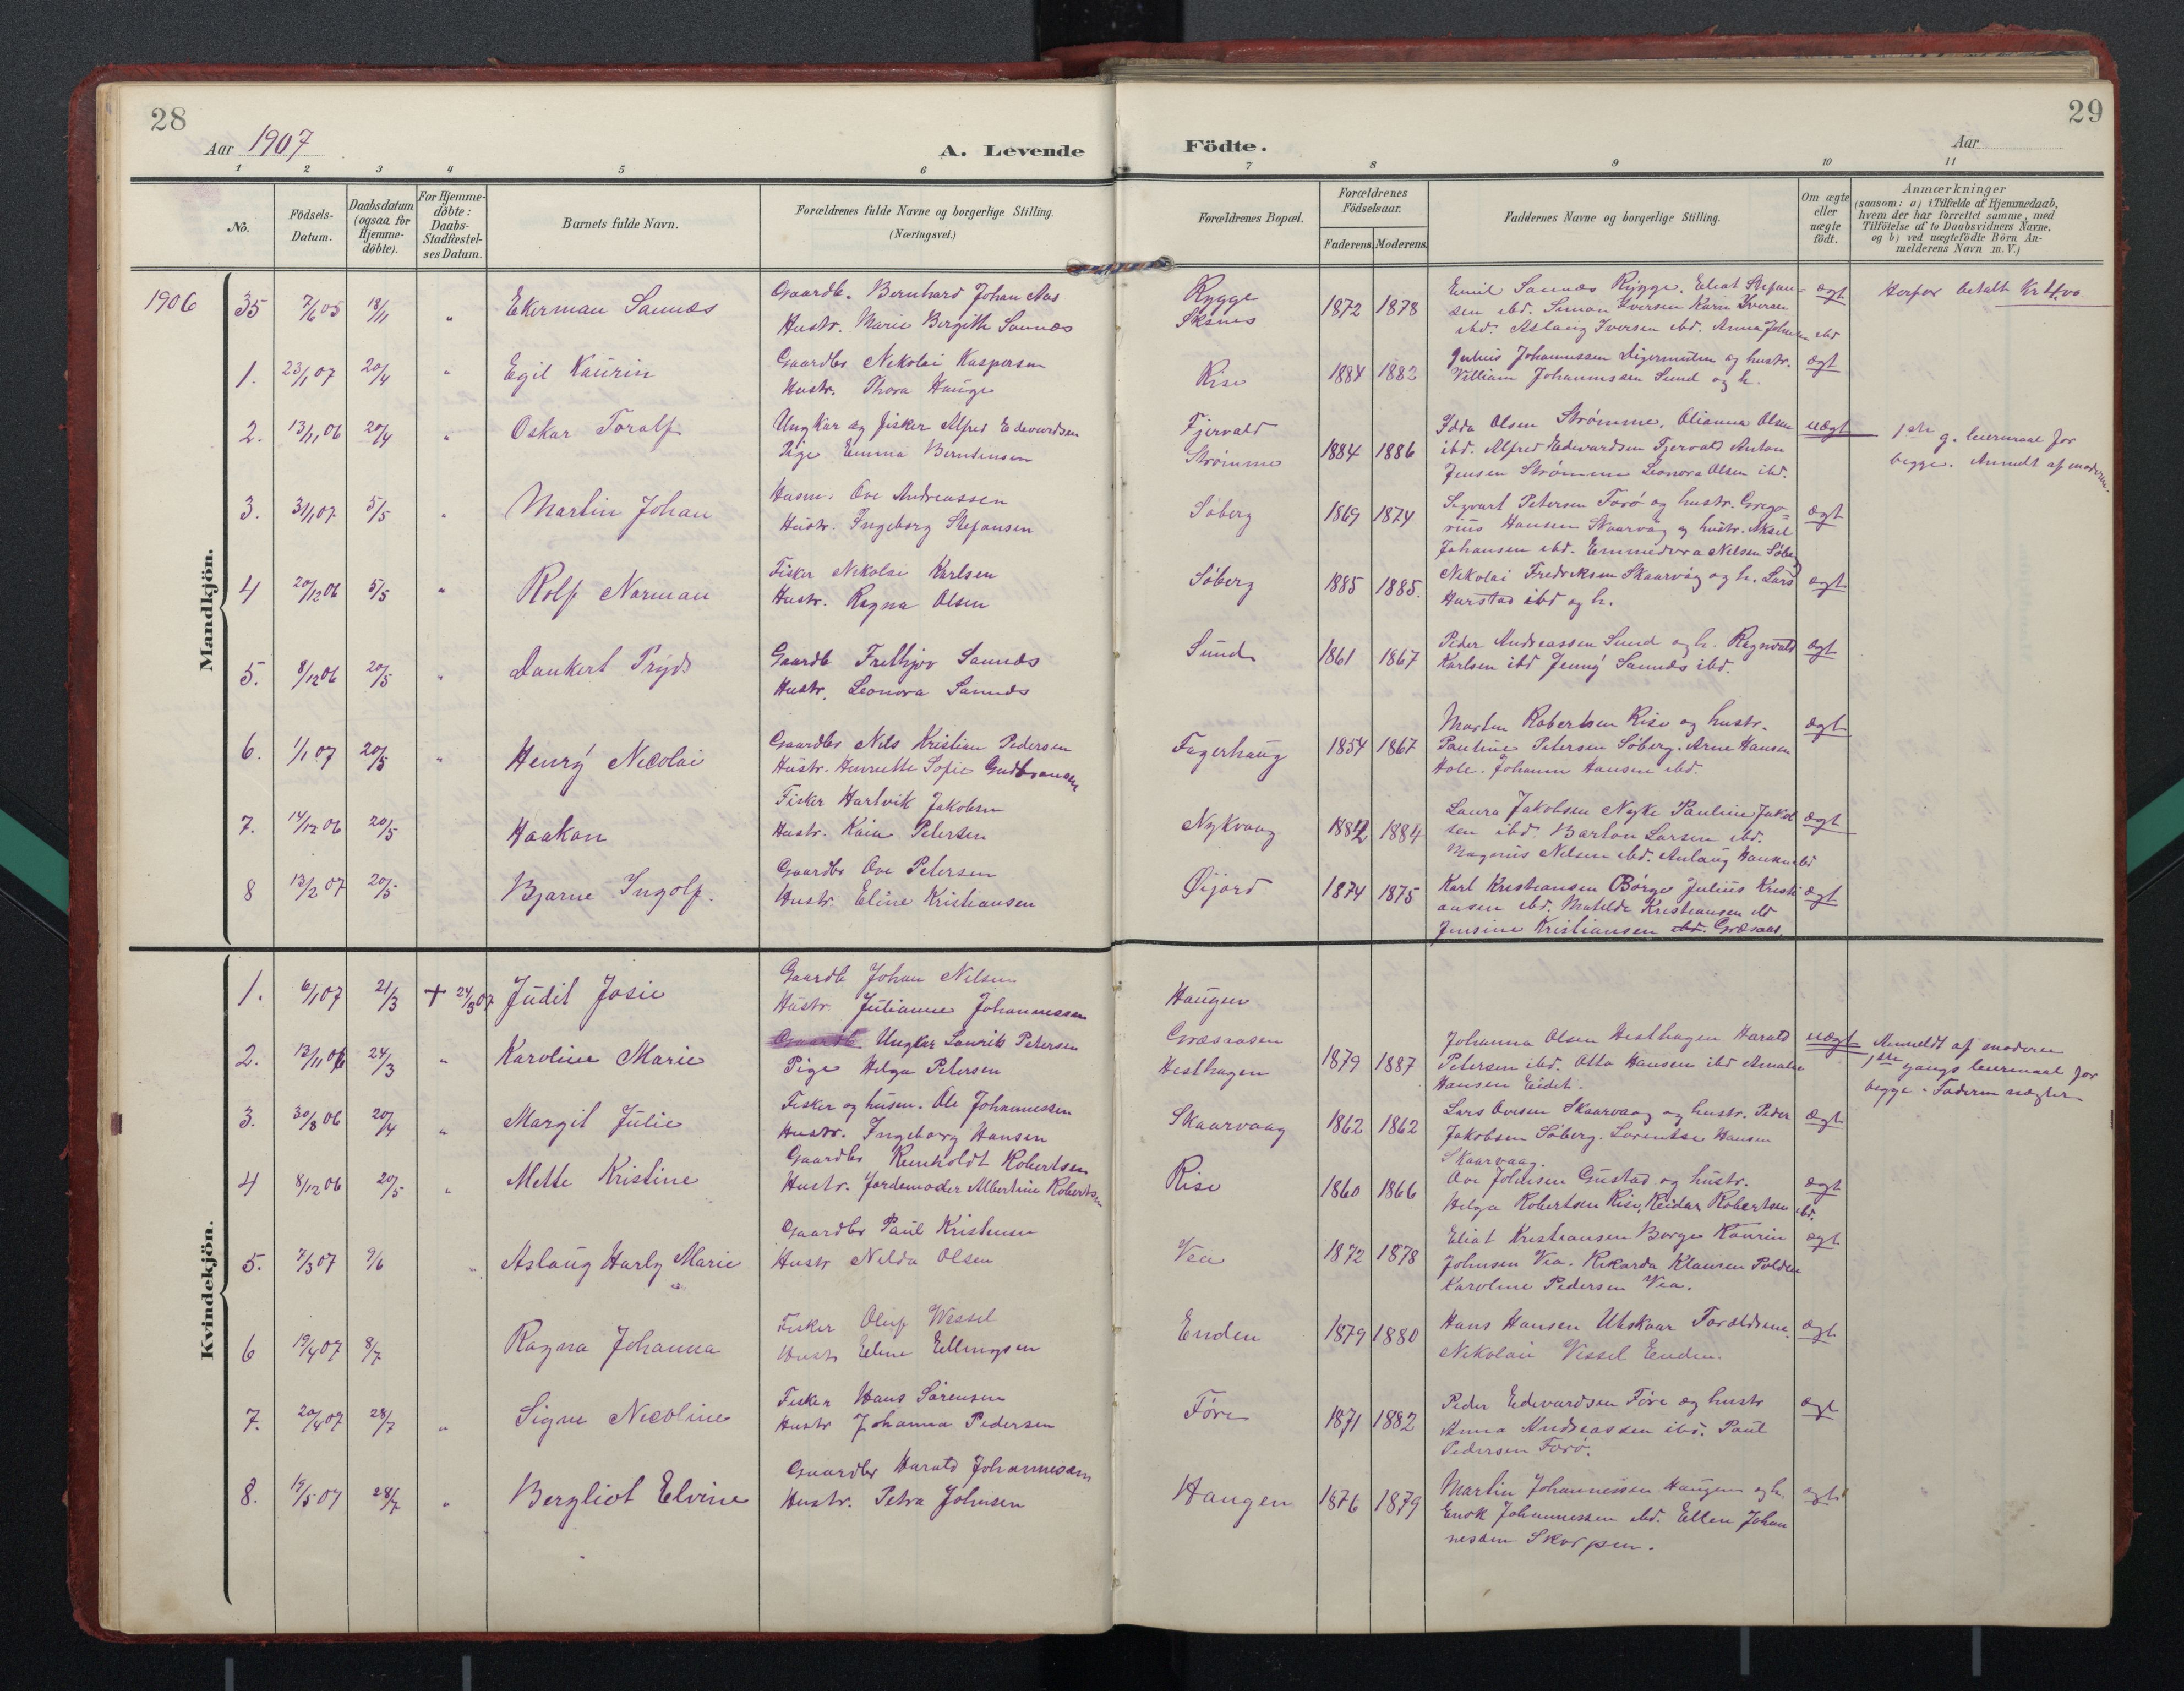 28
Aar 1907
A. Levende
1 2 3 4 5 6
No.
Födsels-Datum.
Daabsdatum (ogsaa for Hjemme-döbte).
For Hjemme-döbte: Daabs-Stadfæstel-ses Datum.
Barnets fulde Navn.
Forældrenes fulde Navne og borgerlige Stilling.
(Næringsvei.)
Födte.
29
Aar
7 8 9 10 11
Forældrenes Bopæl.
Forældrenes Födselsaar.
Faderens. Moderens.
Faddernes Navne og borgerlige Stilling.
Om ægte eller uægte födt.
Anmærkninger
(saasom: a) i Tilfælde af Hjemmedaab,
hvem der har forrettet samme, med
Tilföielse af to Daabsvidners Navne.
og b) ved uægtefödte Börn An-
melderens Navn m. V.)
Mandkjön.
1906 35 7/6 05 18/11 " Ekerman Sannes
Gaardb. Bernhard Johan Aas
Hustr. Marie Bergith Sannes
Rygge
Sksnes
1872 1878
Emil Sannes Rygge, Eliot Stefan-
sen ibd. Simon Iversen Karin Iversen
ibd. Aslaug Iversen ibd. Anna Johnsen ibd
ægt
Herfor betalt Kr 4,00
1. 23/1 07 20/4 " Egil Kaurin
Gaardbr Nikolai Kaspersen
Hustr. Thora Hauge
Rise
1884 1882
Julius Johannessen Digermulen og hustr.
Villiam Johannssen Sund og h.
ægt
2. 13/11 06 20/4 " Oskar Toralf
Ungkar og fisker Alfred Edevardsen
Pige Emma Berntensen
Fjervald
Strømme
1884 1886
Olsen Strømme, Olianna Olsen
ibd. Alfred Edevardsen Fjervald Anton
Jensen Strømme Leonora Olsen ibd.
uægt
1ste g. leiermaal for
begge. Anmeldt af moderen.
3. 31/1 07 5/5 " Martin Johan
Husm. Ove Andreassen
Hustr. Ingeborg Stefansen
Søberg
1869 1874
Sigvart Petersen Forø og hustr. Grego-
rius Hansen Skaarvåg og hustr. Aksel
Johansen ibd. Emmedora Nelsen Søberg
ægt
4 20/12 06 5/5 " Rolf Norman
Fisker Nikolai Karlsen
Hustr. Ragna Olsen
Søberg
1885 1885.
Nikolai Fredriksen Skaarvåg og h. Lars
Harstad ibd og h.
ægt
5. 8/12 06 20/5 " Dankert Pryds
Gaardb Frithjov Sannes
Hustr. Leonora Sannes
Sund
1861 1867
Peder Andreassen Sund og h. Ragnvald
Karlsen ibd Jenny Sannes ibd.
ægt
6. 1/1 07 20/5 " Henry Nicolai
Gaardbr Nils Kristian Pedersen
Hustr. Henriette Sofie Gudbransen
Fagerhaug
1854 1867
Martin Robertsen Rise og hustr.
Pauline Petersen Søberg. Arne Hansen
Hole. Johann Hansen ibd.
ægt
7. 14/12 06 20/5 Haakon
Fisker Hartvik Jakobsen
Hustr. Kaia Petersen
Nykvaag
1882 1884
Laura Jakobsen Nyke Pauline Jakob
sen ibd. Barton Larsen ibd.
Magnus Nilsen ibd. Aslaug Hansen ibd
ægt
8 13/2 07 20/5 Bjarne Ingolf.
Gaardbr Ove Petersen
Hustr. Eline Kristiansen
Øijord
1874 1875
Karl Kristiansen Børge Julius Kristi
ansen ibd. Matilde Kristiansen ibd
Jensine Kristiansen ibd. Græsaas.
ægt
Kvindekjön.
1. 6/1 07 21/3 + 24/3 07 Judit Josie
Gaardb Johan Nilsen
Hustr. Julianne Johannessen
Haugen
2. 12/11 06 24/3 " Karoline Marie
Gaardb Ungkar Laurits Petersen
Pige Helga Petersen
Græsaasen
Hesthagen
1879 1887
Johanna Olsen Hesthagen Harald
Petersen ibd. Otto Hansen ibd Amalie
Hansen Eidet.
uægt
Anmeldt af moderen
1ste gangs leiermaal for
begge. Faderen nægter
3. 30/8 06 20/4 " Margit Julie
Fisker og husm. Ole Johannessen
Hustr. Ingeborg Hansen
Skaarvaag
1862 1862
Lars Ovesen Skaarvaag og hustr. Peder
Jakobsen Søberg. Lorentse Hansen
Skaarvaag.
ægt
4 8/12 06 20/5 " Mette Kristine
Gaardbr Reinholdt Robertsen
Hustr. Jordemoder Albertine Robertsen
Rise
1860 1866
Ove Johnsen Gustad og hustr.
Helga Robertsen Rise, Reidar Robertsen ibd.
ægt
5. 7/3 07 9/6 " Aslaug Harly Marie
Gaardbr Paul Kristensen
Hustr Nelda Olsen
Vea
1872 1878
Eliot Kristiansen Borge Kaurin
Johnsen Vea. Rikarda Klausen Polden
Karoline Pedersen Vea.
ægt
6 19/4 07 8/7 Ragna Johanna
Fisker Oluf Wessel
Hustr Eline Ellingsen
Enden
1879 1880
Hans Hansen Utskaar Forældrene.
Nikolai Vessel Enden.
ægt
7. 20/4 07 28/7 " Signe Nicoline
Fisker Hans Sørensen
Hustr Johanna Pedersen
Føre
1871 1882
Peder Edevardsen Føre og hustr
Anna Andreassen ibd. Paul
Pedersen Forø.
ægt
8. 19/5 07 28/7 " Bergliot Elvine
Gaardbr Harald Johannesen
Hustr. Petra Johnsen
Haugen
1876 1879
Martin Johannessen Haugen og h.
Enok Johannessen ibd. Ellen Johan
nesen Skorpen.
ægt